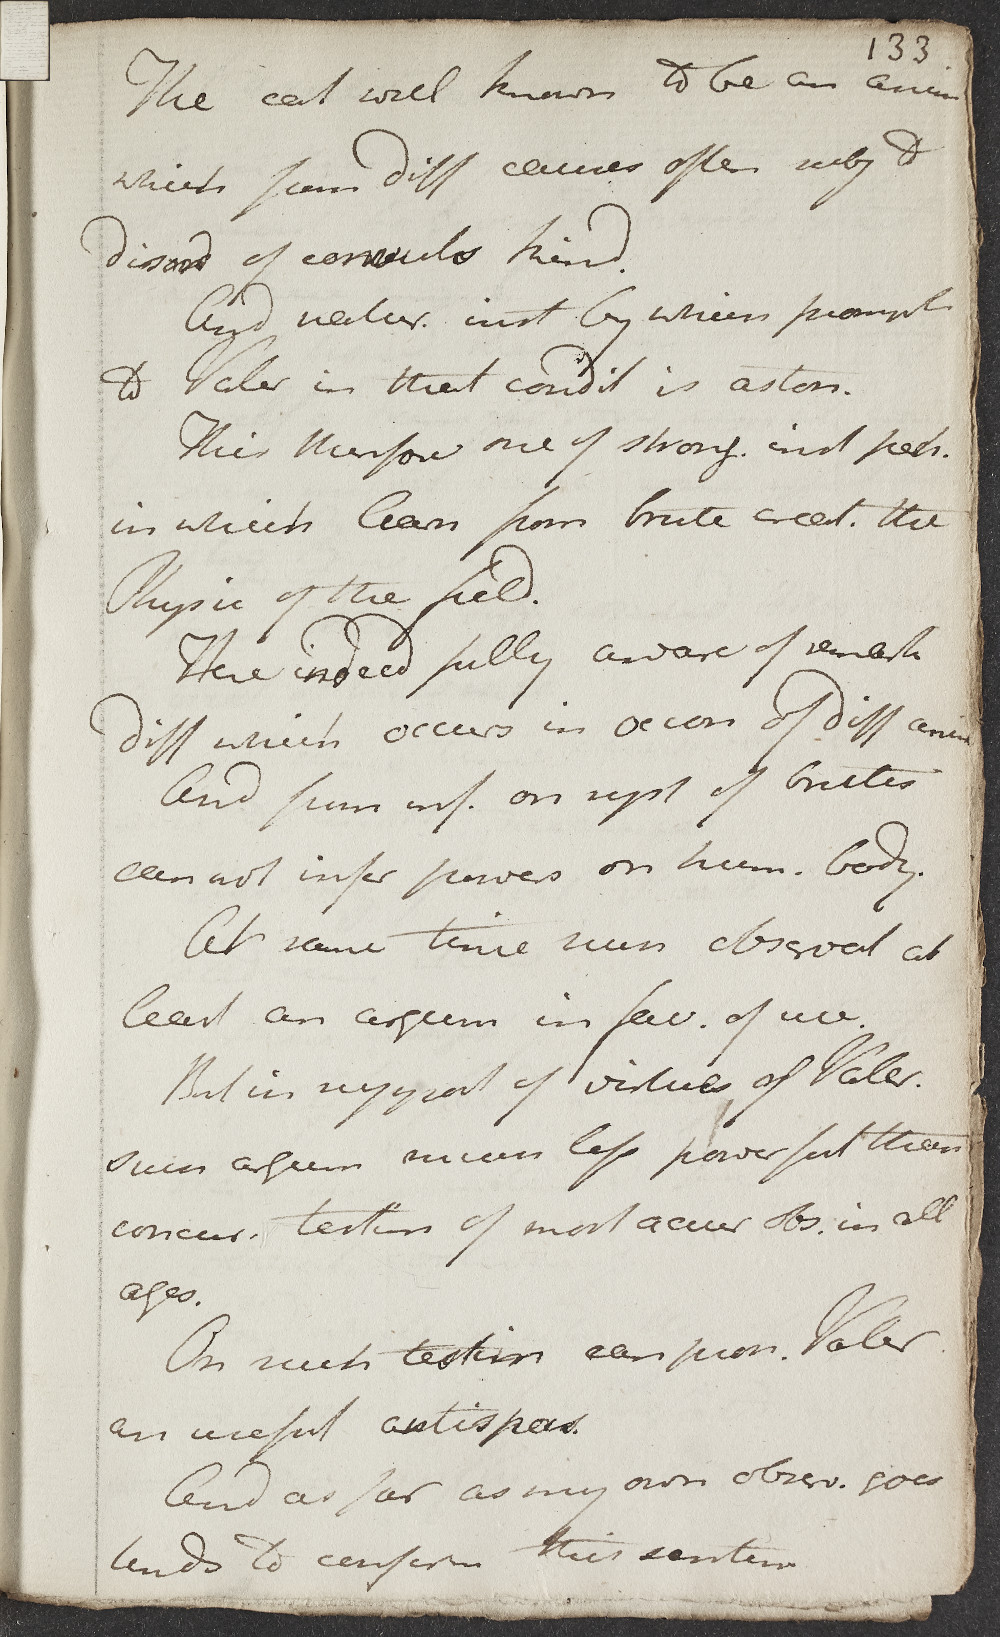 133
The cat well known to be an anim
which from diff causes often subj to
disord of convuls kind.
And natur. inst by which prompt
to Valer in that condit is aston.
This therefore one of strong. inst perh.
in which learn from brute creat. the
Physic of the field.
Here indeed fully aware of remark
diff which occurs in oecon of diff anim
And from inf. on syst of brutes
cannot infer powers on hum. body.
At same time such observat at
least an argum in fav. of use.
But in support of virtues of Valer.
such argum much less powerful than
concur. testim of most accur obs. in all
ages.
On such testim can pron. Valer
an useful antispas.
And as far as my own observ. goes
tends to confirm this senten